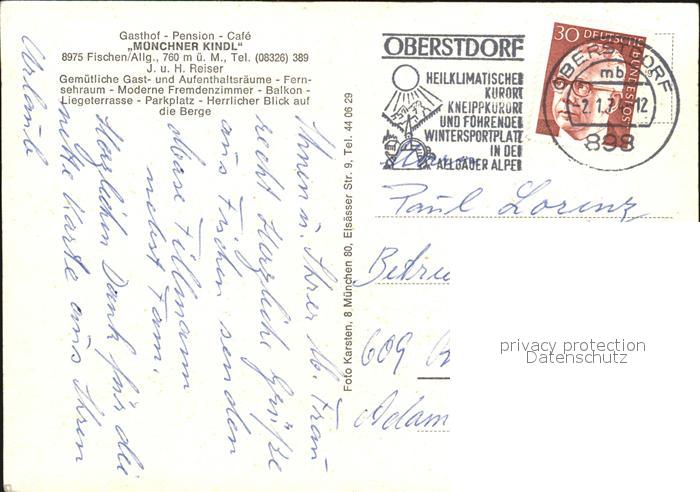 Gasthof - Pension - Café
„MÜNCHNER KINDL"
8975 Fischen/Allg., 760 m ü. M., Tel. (08326) 389
J. u. H. Reiser
Gemütliche Gast- und Aufenthaltsräume - Fern-
sehraum - Moderne Fremdenzimmer - Balkon -
Liegeterrasse - Parkplatz - Herrlicher Blick auf
die Berge
Ihnen u. Ihrer lb. Frau
recht herzliche Grüße
aus Fischen senden
Tillmann
nebst Fam.
Herzlichen Dank für die
nette Karte aus Ihrem
Urlaub
Foto Karsten, 8 München 80, Elsässer Str. 9, Tel. 44 06 29
OBERSTDORF
HEILKLIMATISCHER
KURORT
KNEIPPKURORT
UND FÜHRENDER
WINTERSPORTPLATZ
IN DEN
ALLGÄUER ALPEN
30 DEUTSCHE BUNDESPOST
OBERSTDORF
mb
-2.1.7 -12
898
Paul Lorenz
609
Adam
privacy protection
Datenschutz